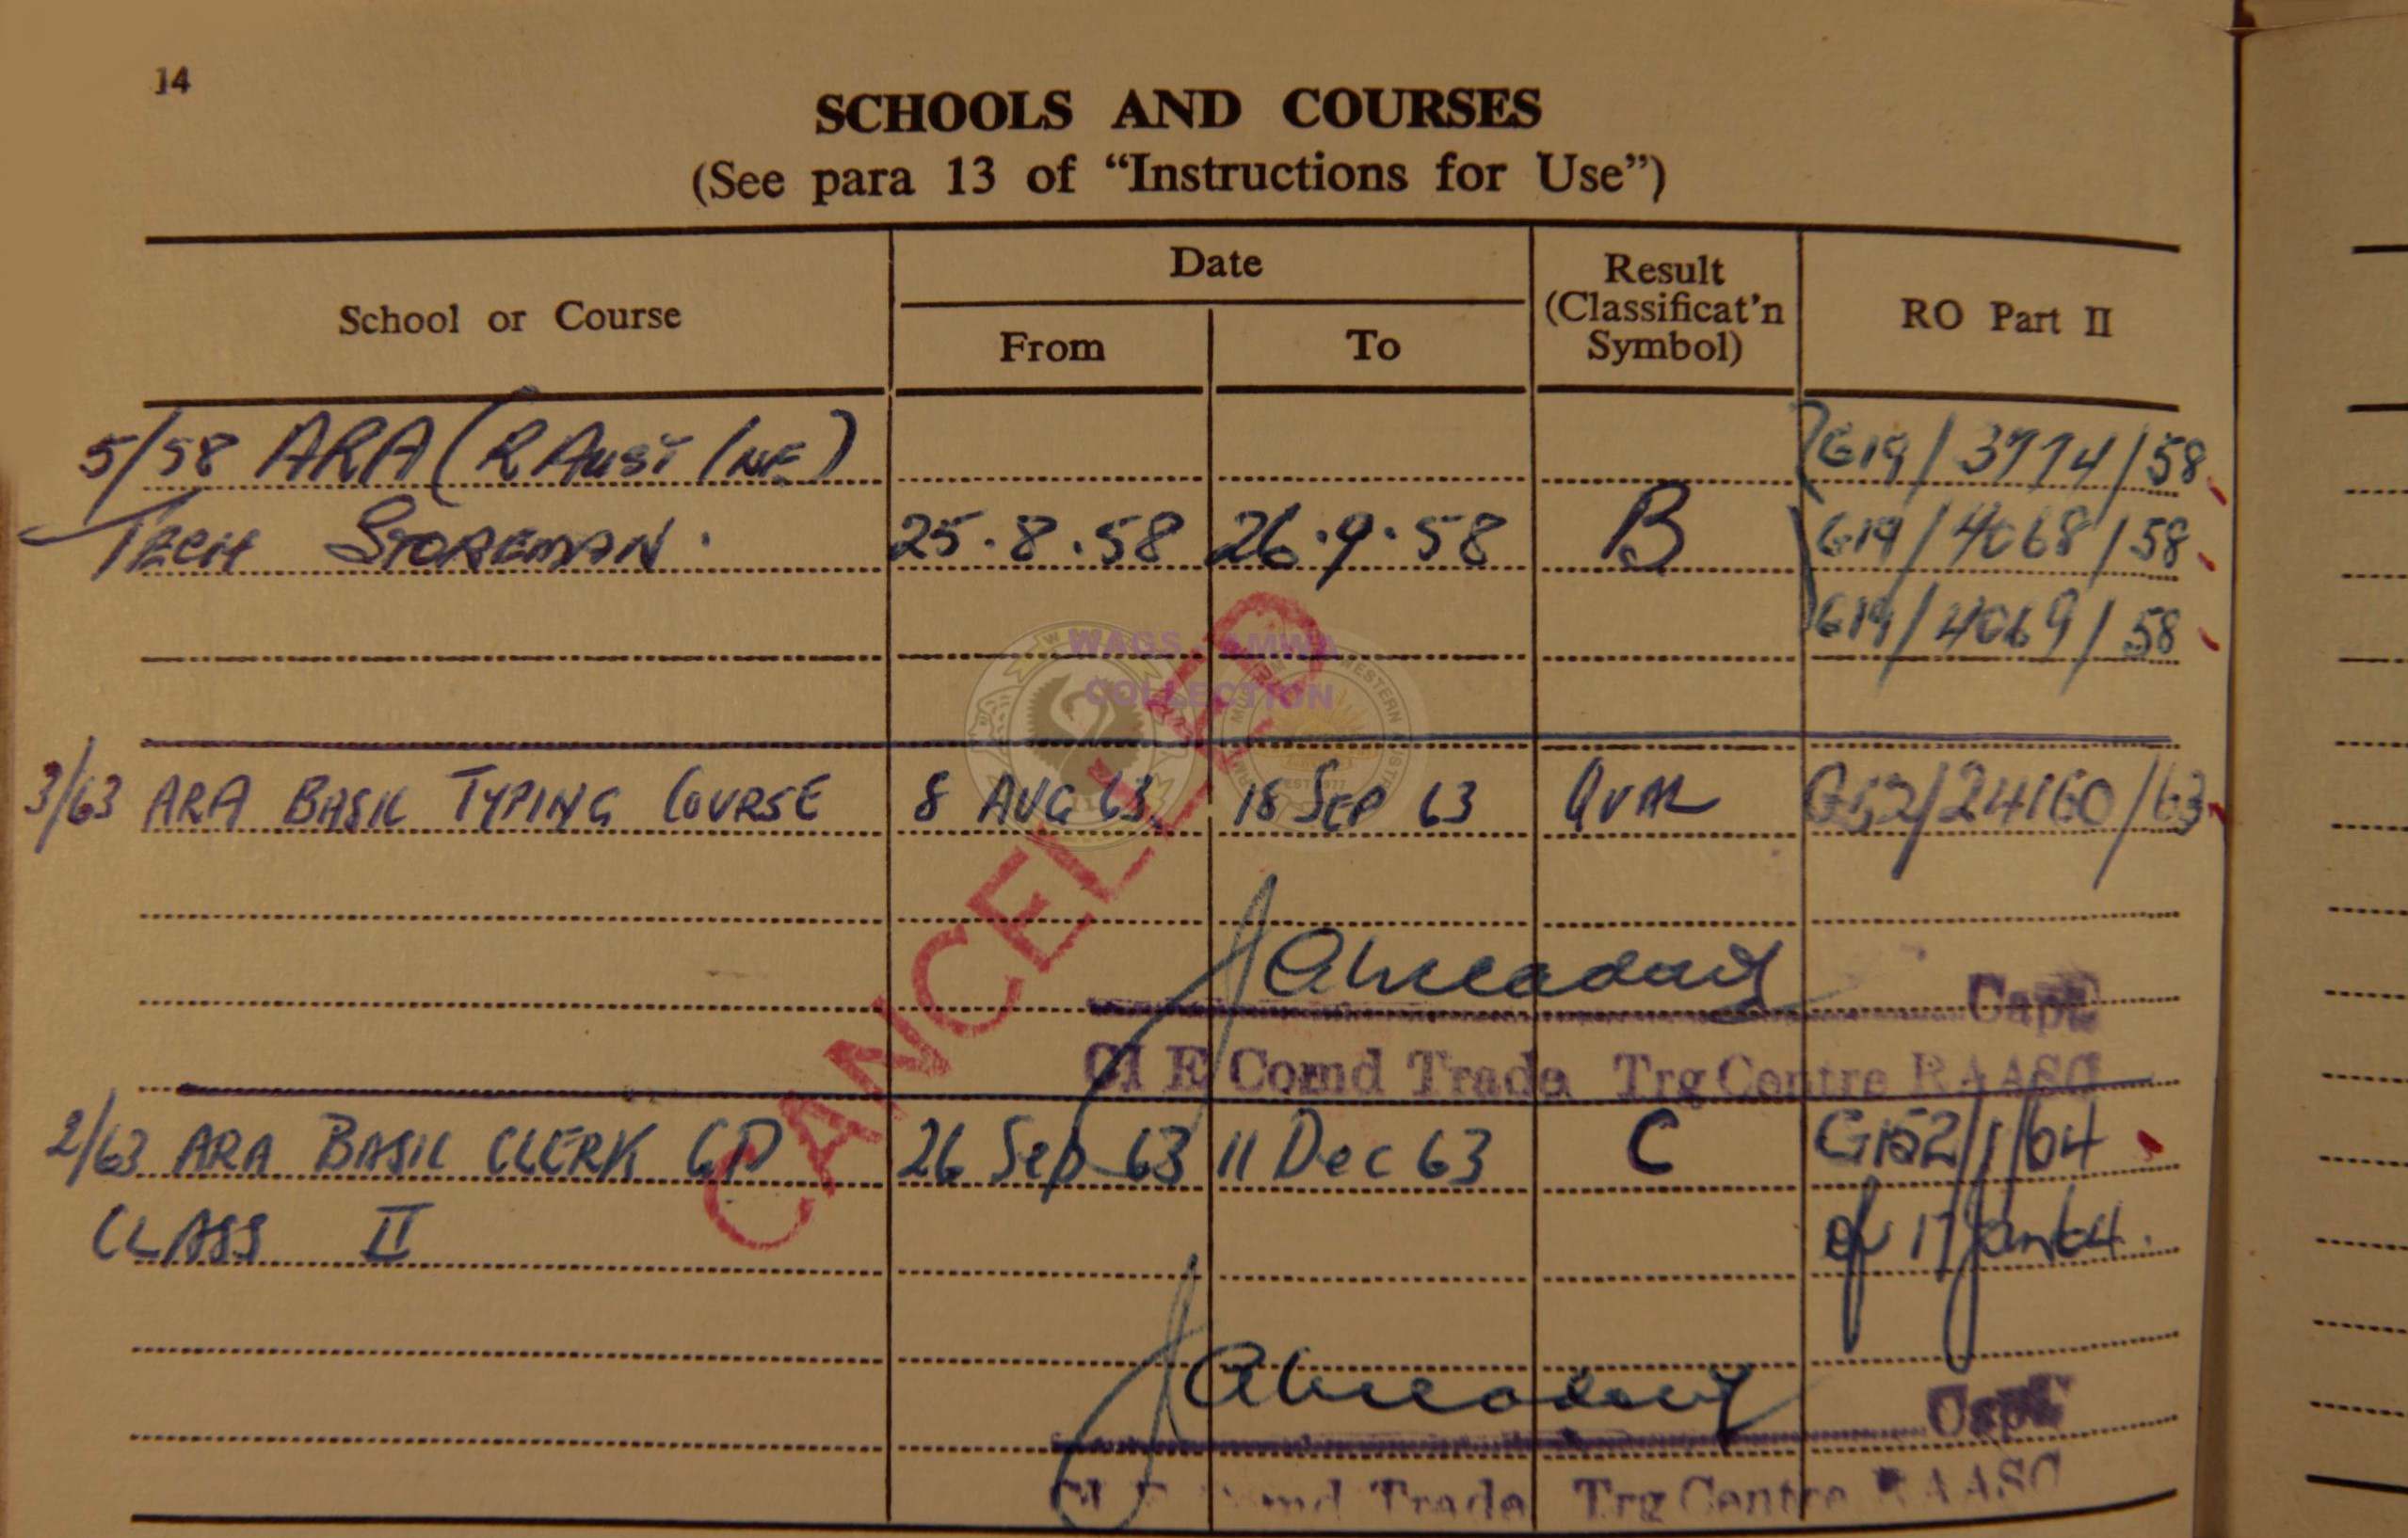 14
SCHOOLS AND COURSES
(See para 13 of “Instructions for Use”)
School or Course
Date
From
To
Result
(Classificat’n
Symbol)
RO Part II
5/58 ARA (R AUST INF) G19/3774/58
TECH STOREMAN. 25.8.58 26.9.58 B G19/4068/58
G19/4069/58
WAGS AMWA
COLLECTION
3/63 ARA BASIC TYPING COURSE 8 AUG 63. 18 SEP 63 QUAL G52/24160/63
CANCELLED
Capt
CI E Comd Trade Trg Centre RAASC
2/63 ARA BASIC CLERK GD 26 Sep 63 11 Dec 63 C G152/1/64
CLASS II of 17 Jan 64.
Capt
CI E Comd Trade Trg Centre RAASC